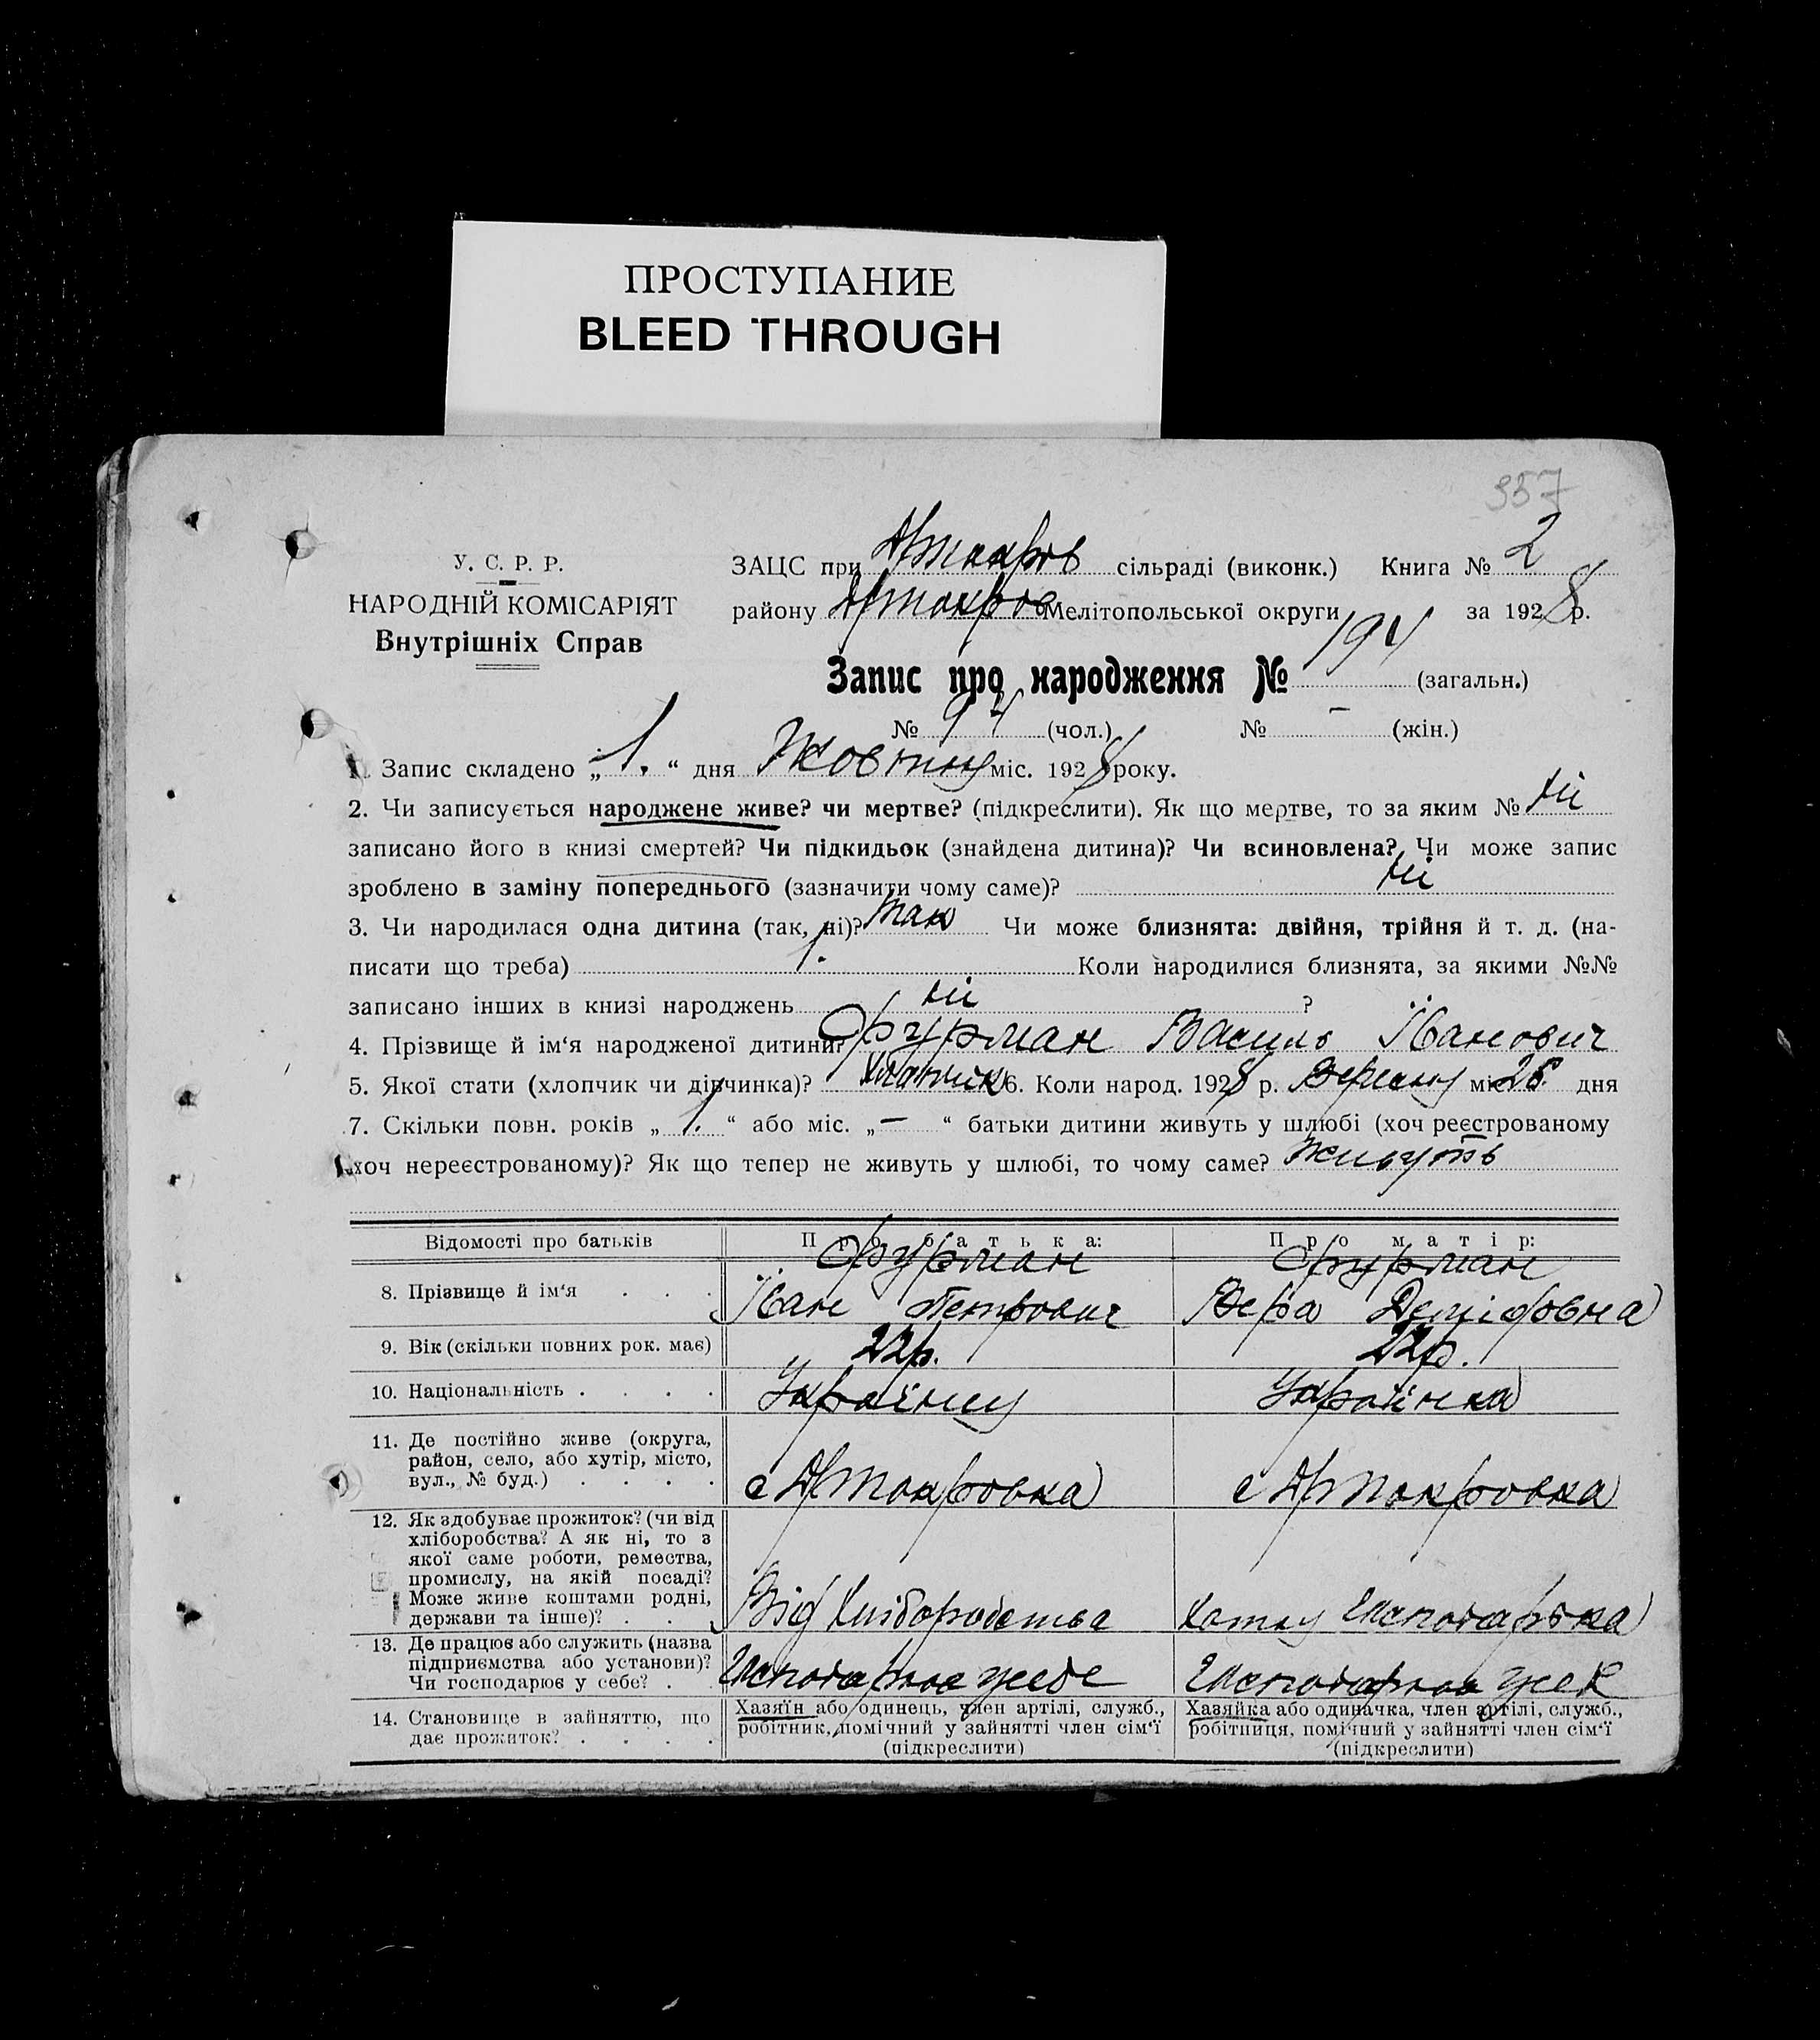 ПРОСТУПАНИЕ
BLEED THROUGH
357
У. С. Р. Р.
НАРОДНІЙ КОМІСАРІЯТ
Внутрішніх Справ
ЗАЦС при сільраді (виконк.) Книга № 2
району Мелітопольської округи за 1928 р.
Запис про народження № 194 (загальн.)
№ 94 (чол.) № - (жін.)
1. Запис складено „ 1. “ дня Жовтню міс. 1928 року.
2. Чи записується народжене живе? чи мертве? (підкреслити). Як що мертве, то за яким № ні
записано його в книзі смертей? Чи підкидьок (знайдена дитина)? Чи всиновлена? Чи може запис
зроблено в заміну попереднього (зазначити чому саме)? ні
3. Чи народилася одна дитина (так, ні)? так Чи може близнята: двійня, трійня й т. д. (на-
писати що треба) 1. Коли народилися близнята, за якими №№
записано інших в книзі народжень ні ?
4. Прізвище й ім‘я народженої дитини? Фурман Василь Іванович
5. Якої стати (хлопчик чи дівчинка)? 6. Коли народ. 1928 р. Вересню міс. дня
7. Скільки повн. років „ 1. “ або міс. „ — “ батьки дитини живуть у шлюбі (хоч реєстрованому
хоч нереєстрованому)? Як що тепер не живуть у шлюбі, то чому саме? живуть
Відомості про батьків Про батька: Про матір:
8. Прізвище й ім‘я . . . Фурман Іван Петрович Фурман Вера Демідовна
9. Вік (скільки повних рок. має) 22р. 22р.
10. Національність . . . . Українцу Українка
11. Де постійно живе (округа,
район, село, або хутір, місто,
вул., № буд.) . . . .
12. Як здобуває прожиток? (чи від
хліборобства? А як ні, то з
якої саме роботи, ремества,
промислу, на якій посаді?
Може живе коштами родні,
держави та інше)? . . . Від Хліборобства
13. Де працює або служить (назва
підприємства або установи)?
Чи господарює у себе? .
14. Становище в зайняттю, що
дає прожиток? . . . .
Хазяїн або одинець, член артілі, служб.,
робітник, помічний у зайнятті член сім‘ї
(підкреслити)
Хазяйка або одиначка, член артілі, служб.,
робітниця, помічний у зайнятті член сім‘ї
(підкреслити)